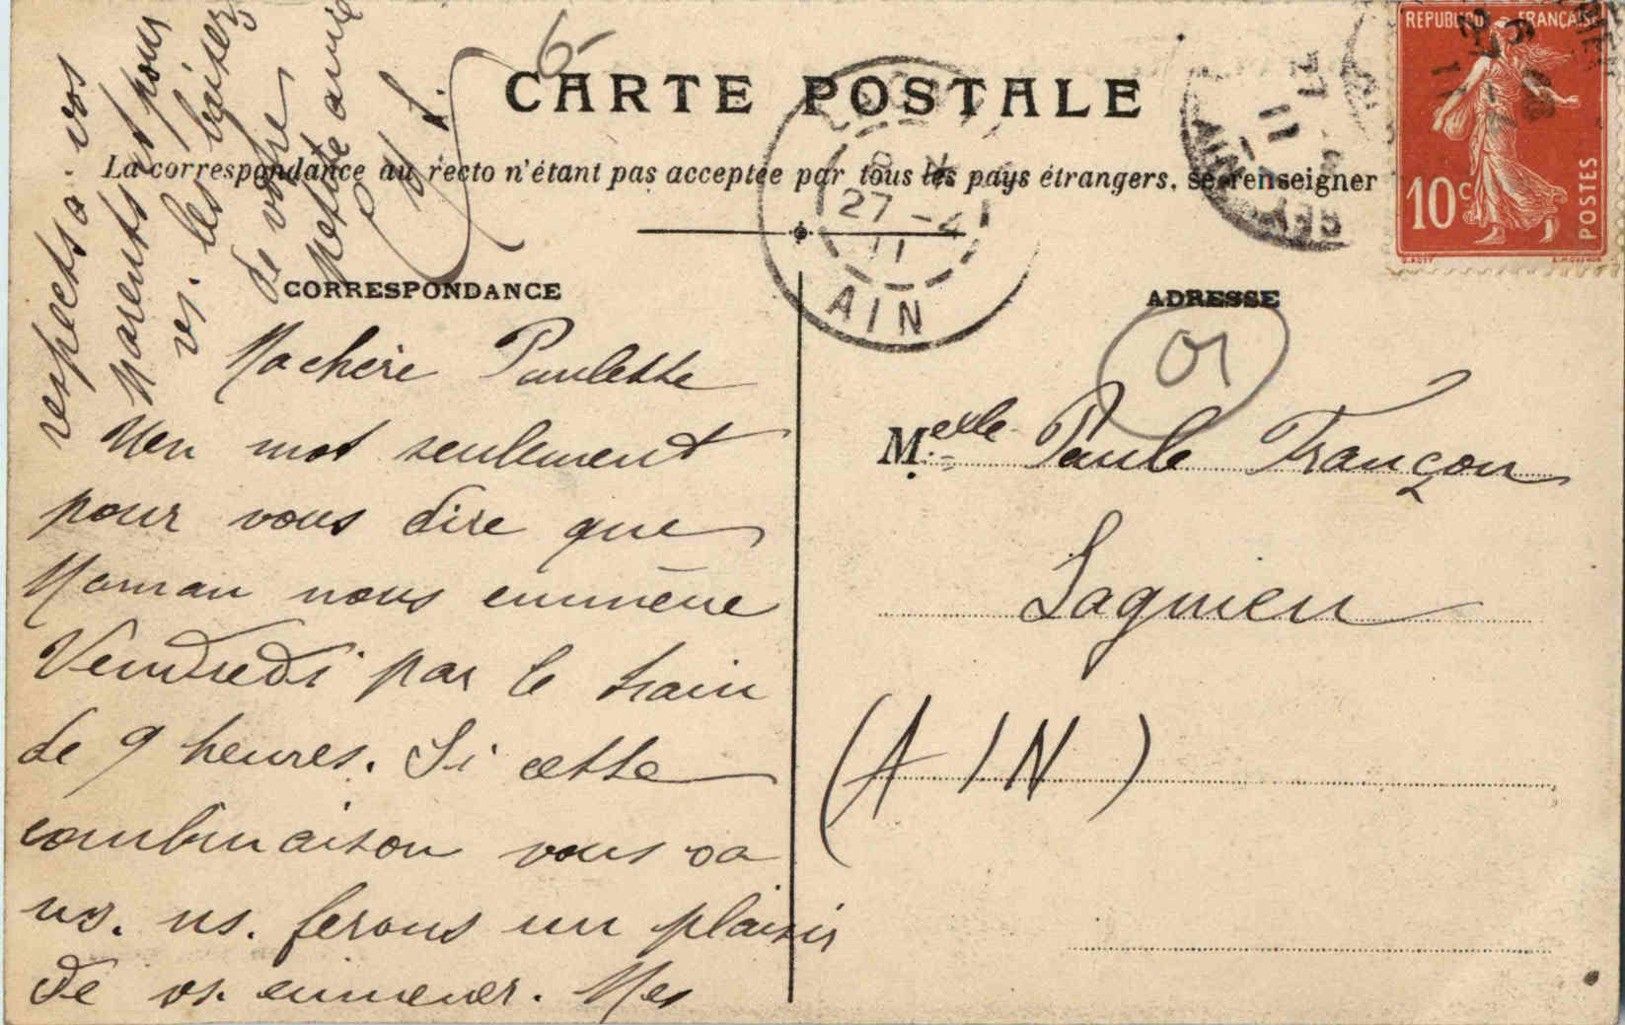 CARTE POSTALE
La correspondance au recto n'étant pas acceptée par tous les pays étrangers, se renseigner
CORRESPONDANCE
Ma chère Paulette
Un mot seulement
pour vous dire que
Maman nous emmène
Vendredi par le train
de 9 heures. Si cette
combinaison vous va
ns. ns. ferons un plaisir
de vs. emmener. Mes
respects à vos
parents et pour
vs. les baisers
de votre
petite amie
6-
ADRESSE
01
Melle Paule Françon
Lagnieu
(AIN)
27-4
11
AIN
REPUBLIQUE FRANÇAISE
10c
POSTES